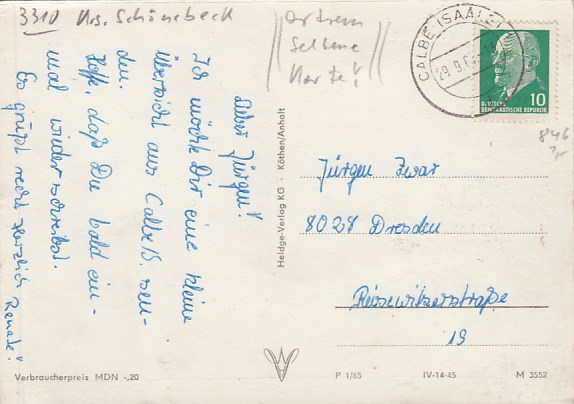 3310 Krs. Schönebeck
extrem
seltene
Karte!
CALBE (SAALE)
29.9.6
10
DEUTSCHE
DEMOKRATISCHE REPUBLIK
846
Lieber Jürgen!
Ich möchte Dir eine kleine
Übersicht aus Calbe/S. sen-
den.
Hoffe, daß Du bald ein-
mal wieder schreibst.
Es grüßt recht herzlich Renate!
Heldge-Verlag KG · Köthen/Anhalt
Jürgen Zwar
8028 Dresden
Reisewitzerstraße
19
Verbraucherpreis MDN -,20
P 1/65 IV-14-45 M 3552